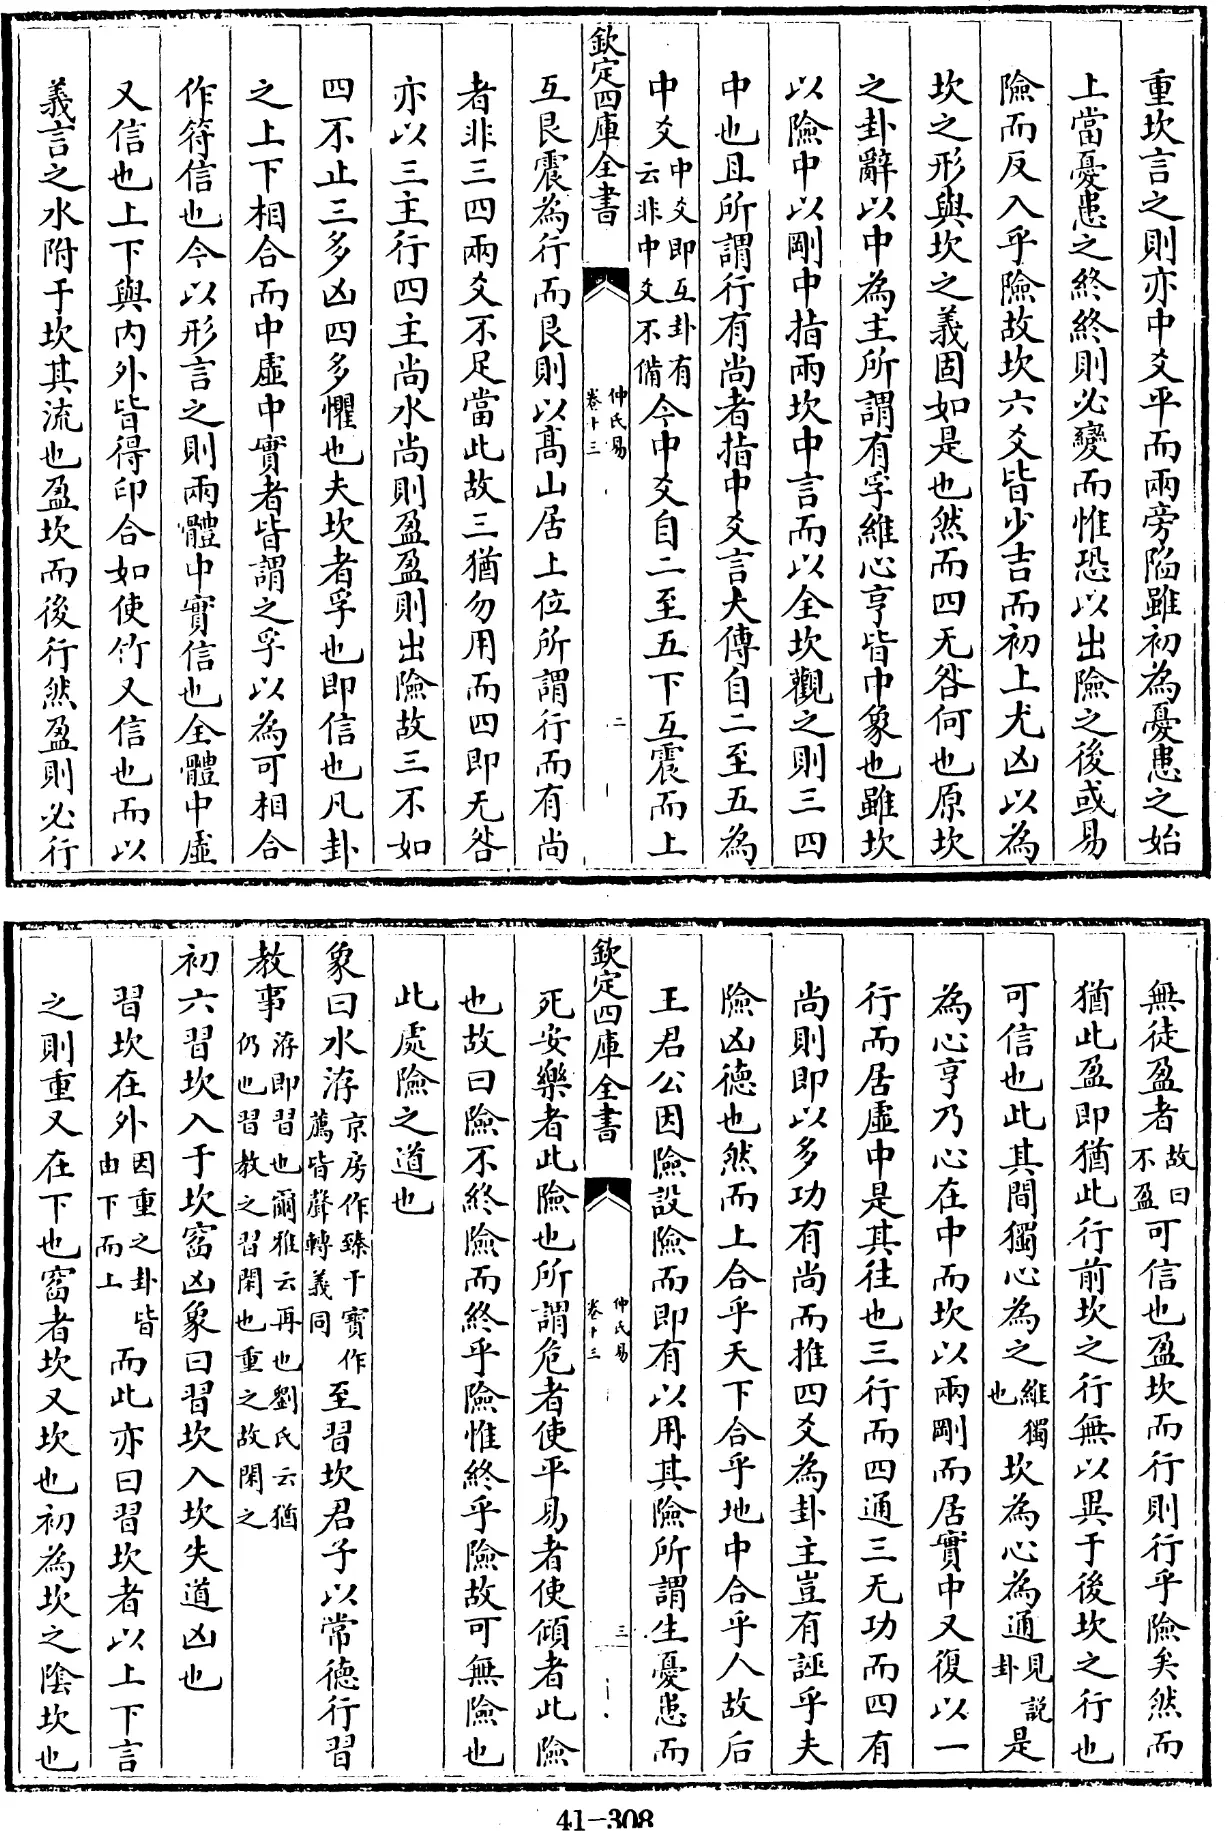 重坎言之則亦中爻平而兩旁陷雖初為憂患之始
上當憂患之終終則必變而惟恐以出險之後或易
險而反入乎險故坎六爻皆少吉而初上尤凶以為
坎之形與坎之義固如是也然而四无咎何也原坎
之卦辭以中為主所謂有孚維心亨皆中象也雖坎
以險中以剛中指兩坎中言而以全坎觀之則三四
中也且所謂行有尚者指中爻言大傳自二至五為
中爻中爻即互卦有云非中爻不備今中爻自二至五下互震而上
欽定四庫全書
仲氏易
卷十三
二
互艮震為行而艮則以高山居上位所謂行而有尚
者非三四兩爻不足當此故三猶勿用而四即无咎
亦以三主行四主尚水尚則盈盈則出險故三不如
四不止三多凶四多懼也夫坎者孚也即信也凡卦
之上下相合而中虛中實者皆謂之孚以為可相合
作符信也今以形言之則兩體中實信也全體中虛
又信也上下與内外皆得印合如使竹又信也而以
義言之水附于坎其流也盈坎而後行然盈則必行
無徒盈者故曰不盈可信也盈坎而行則行乎險矣然而
猶此盈即猶此行前坎之行無以異于後坎之行也
可信也此其間獨心為之維獨也坎為心為通見說卦是
為心亨乃心在中而坎以兩剛而居實中又復以一
行而居虛中是其往也三行而四通三无功而四有
尚則即以多功有尚而推四爻為卦主豈有誣乎夫
險凶德也然而上合乎天下合乎地中合乎人故后
王君公因險設險而即有以用其險所謂生憂患而
欽定四庫全書
仲氏易
卷十三
三
死安樂者此險也所謂危者使平易者使傾者此險
也故曰險不終險而終乎險惟終乎險故可無險也
此處險之道也
象曰水洊京房作臻干寶作薦皆聲轉義同至習坎君子以常德行習
教事洊即習也爾雅云再也劉氏云猶仍也習教之習閑也重之故閑之
初六習坎入于坎窞凶象曰習坎入坎失道凶也
習坎在外因重之卦皆由下而上而此亦曰習坎者以上下言
之則重又在下也窞者坎又坎也初為坎之陰坎也
41-308